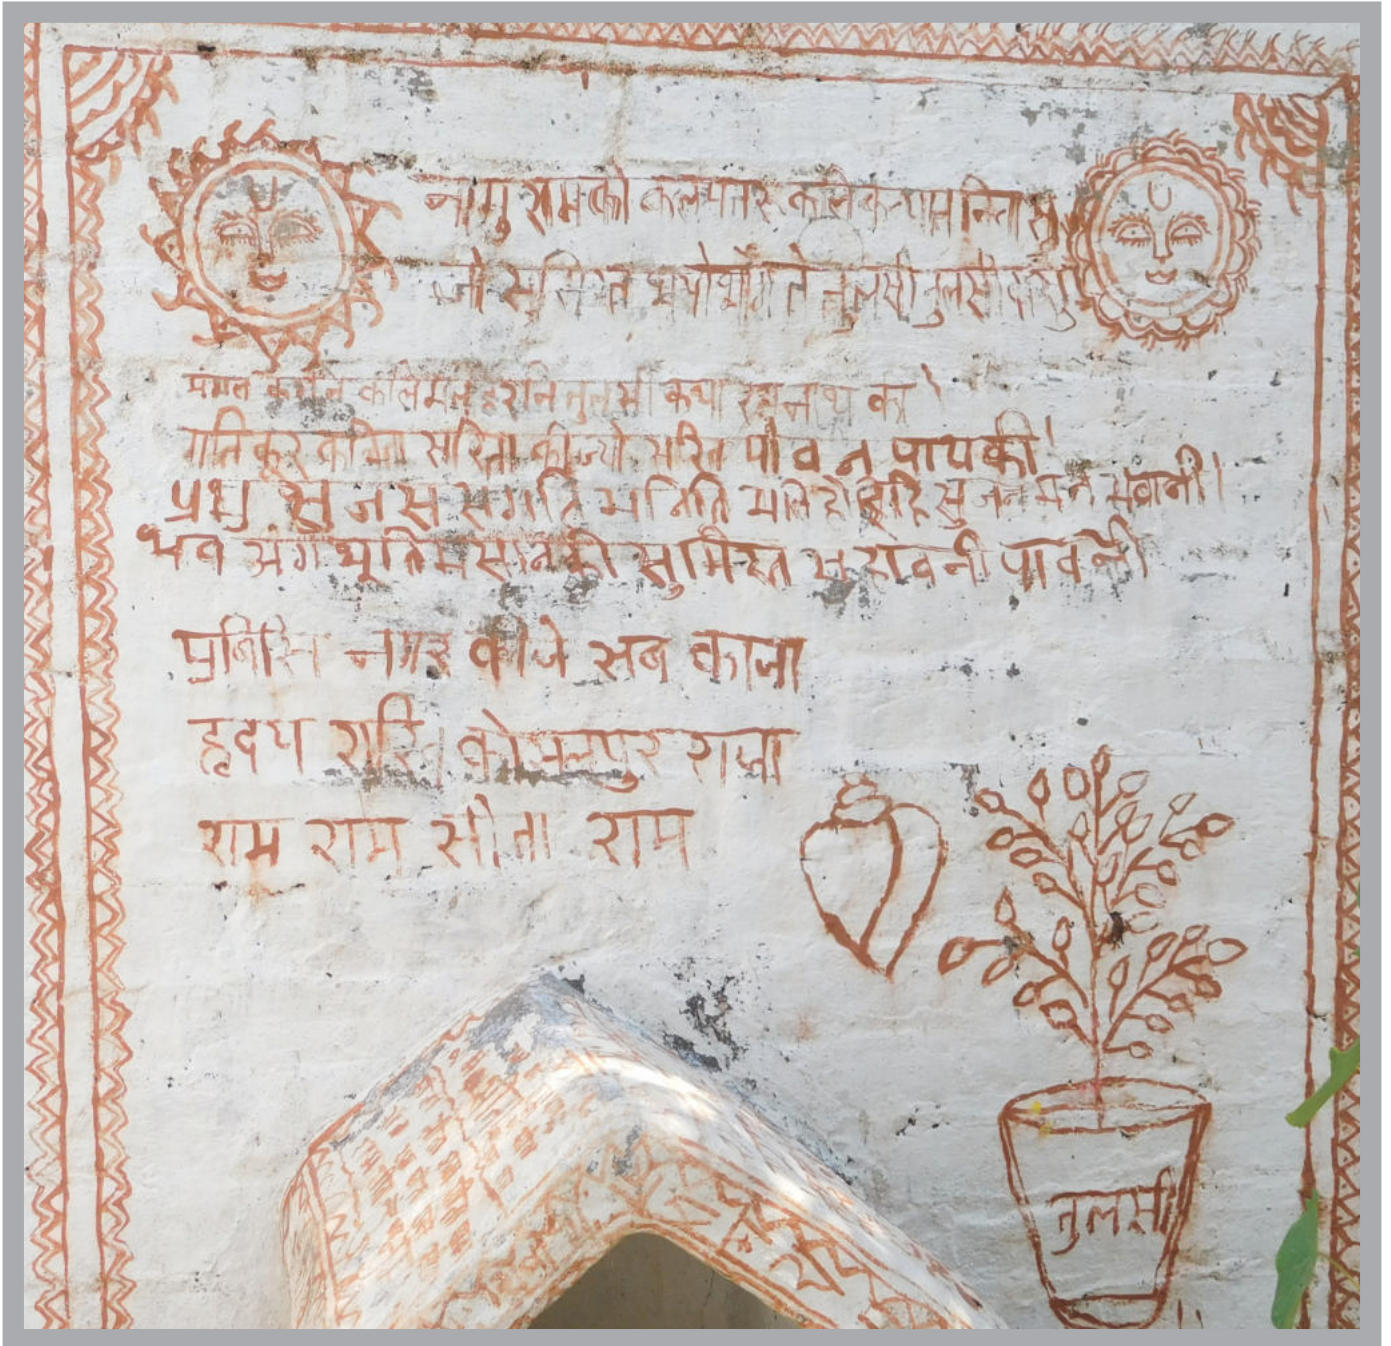 नामु राम को कलपतर कलि कल्यान निवासु
जो सुमिरत भयो भाँग ते तुलसी तुलसीदासु
मंगल करनि कलिमल हरनि तुलसी कथा रघुनाथ की।
गति कूर कविता सरिता की ज्यों सरित पावन पाथ की।
प्रभु सुजस संगति भनिति भलि होइहि सुजन मन भावानी।
भव अंग भूति मसान की सुमिरत सुहावनी पावनी
प्रबिसि नगर कीजे सब काजा
हृदय राखि कोसलपुर राजा
राम राम सीता राम
तुलसी